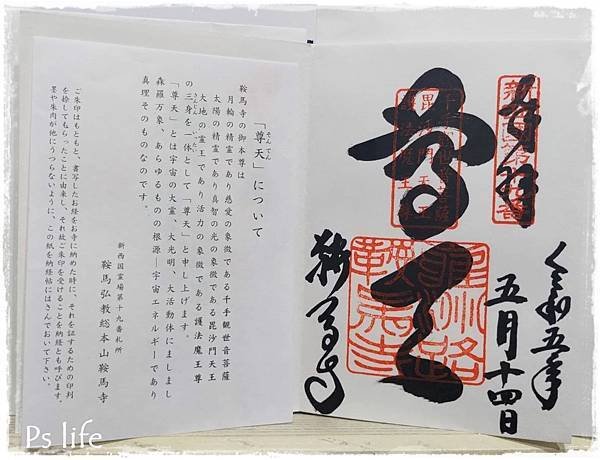 奉拝
令和五年
五月十四日
尊天
鞍馬寺
「尊天」について
そんてん
鞍馬寺の御本尊は
月輪の精霊であり慈愛の象徴である千手観世音菩薩
太陽の精霊であり真智の光の象徴である毘沙門天王
大地の霊王であり活力の象徴である護法魔王尊
の三身を一体として「尊天」と申し上げます。
「尊天」とは宇宙の大霊、大光明、大活動体にましまし
森羅万象、あらゆるものの根源―宇宙エネルギーであり
真理そのものなのです。
新西国霊場第十九番札所
鞍馬弘教総本山鞍馬寺
ご朱印はもともと、書写したお経をお寺に納めた時に、それを証するための印判
を捺してもらったことに由来し、それ故ご朱印を受けることを納経とも呼びます。
墨や朱肉が他にうつらないように、この紙を納経帖にはさんでおいて下さい。
Ps life